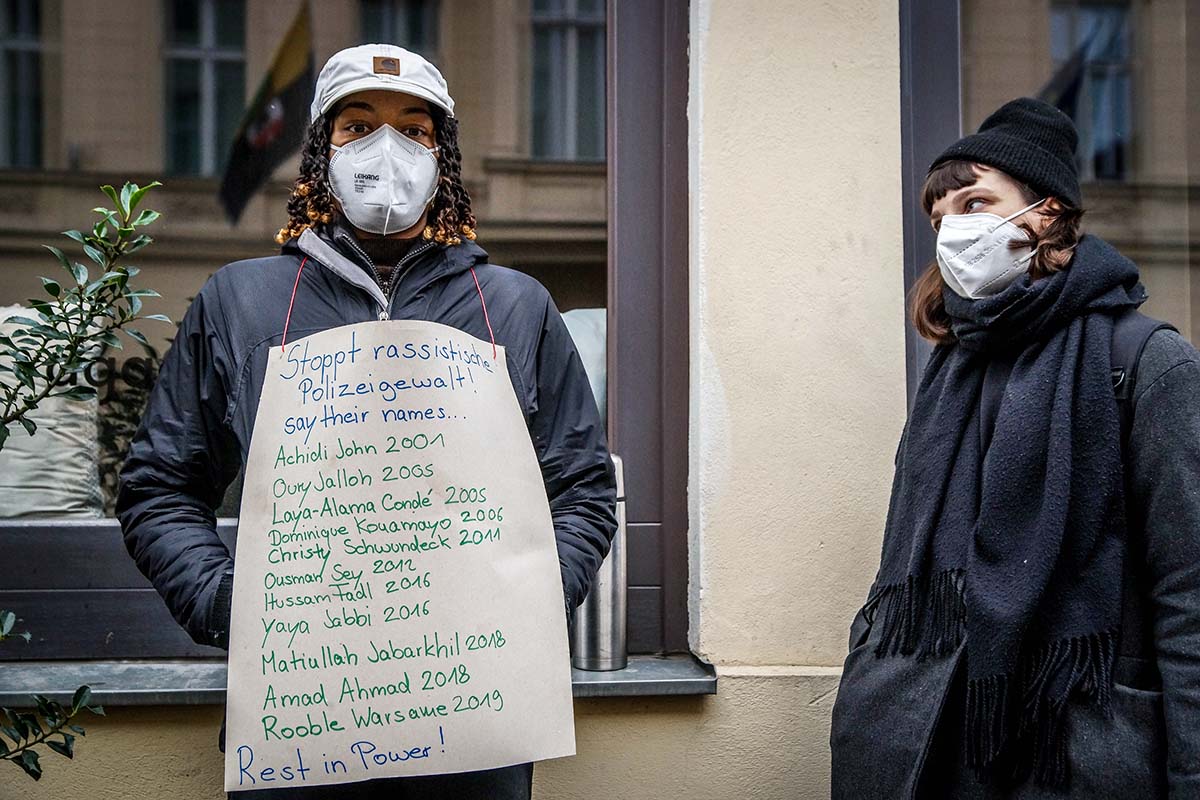 LEIKANG
Stoppt rassistische
Polizeigewalt!
say their names...
Achidi John 2001
Oury Jalloh 2005
Laya-Alama Condé 2005
Dominique Kouamayo 2006
Christy Schwundeck 2011
Ousman Sey 2012
Hussam Fadl 2016
Yaya Jabbi 2016
Matiullah Jabarkhil 2018
Amad Ahmad 2018
Rooble Warsame 2019
Rest in Power!